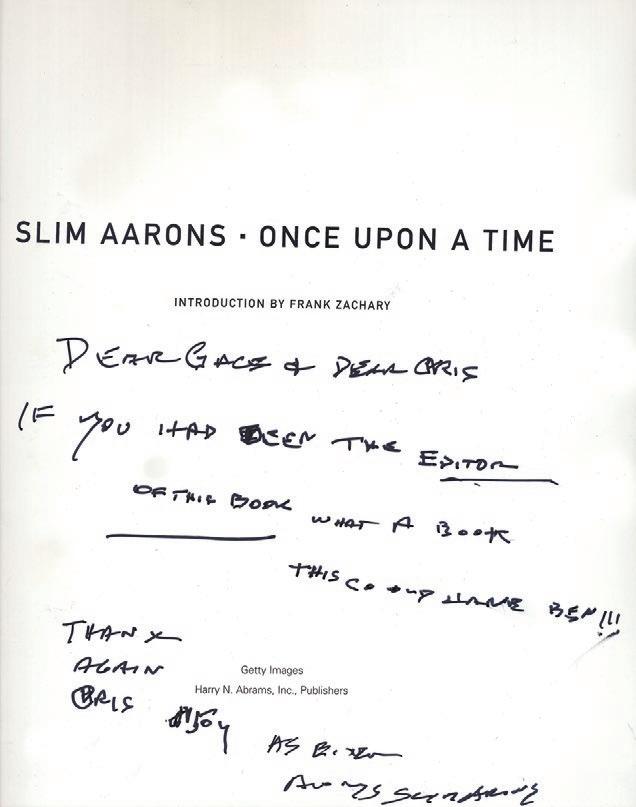 SLIM AARONS · ONCE UPON A TIME
INTRODUCTION BY FRANK ZACHARY
DEAR GACE & DEAR CRIS
IF YOU HAD BEEN THE EDITOR
OF THIS BOOK WHAT A BOOK
THIS COULD HAVE BEN!!!
THANX
AGAIN
CRIS
Getty Images
Harry N. Abrams, Inc., Publishers
AS
ALWAYS SLIM AARONS